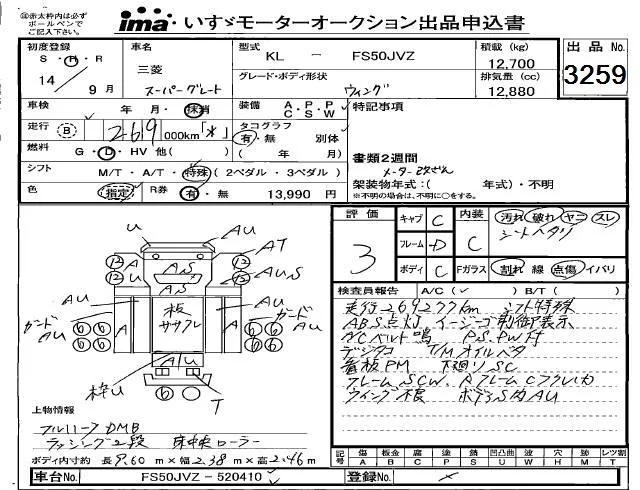 ㊟赤太枠内は必ず
ボールペンで
ご記入下さい。
ima・いすゞモーターオークション出品申込書
初度登録 車名 型式 積載 (kg) 出品 No.
S・H・R 三菱 KL － FS50JVZ 12,700
14 グレード・ボディ形状 排気量 (cc) 3259
9 月 スーパーグレート ウィング 12,880
車検 年 月・抹消 装備 A・P・P 特記事項
C・S・W
走行 B 269 000km「*」 タコグラフ
有・無 別体
燃料 G・D・HV 他( ) ( 年 月) 書類2週間
シフト M/T・A/T・特殊 (2ペダル・3ペダル) 架装物年式：( 年式)・不明
色 指定 R券 有・無 13,990 円 ※不明の場合は、不明に○をする。
評価 キャブ C 内装 汚れ 破れ ヤニ スレ
3 フレーム D C シートヘタリ
ボディ C Fガラス 割れ 線 点傷 イバリ
検査員報告 A/C (✓) B/T ( )
走行269277km シフト特殊
ABS点灯 イージーゴー制御表示
A/Cベルト鳴 P.S.PW付
デジタコ T/Mオイルベタ
看板PM 下廻りSC
ウイング不良
U AU
AT
12 A,S 12
12 AU,S 12
AU AU
ガード 板 ガード
AU A ササクレ A AU
6 6 6 6
6 6 6 6
A/U
枠U 6 T
上物情報
フルハーフ DMB
ラッシング2段 床中央ローラー
ボディ内寸約 長9.60 m×幅2.38 m×高2.46m
記号 傷 A 板金 B 腐 C 塗 P 錆 S 凹凸曲 U 波 W 穴 H 時 M レツ割 T
車台No. FS50JVZ－520410 登録No.